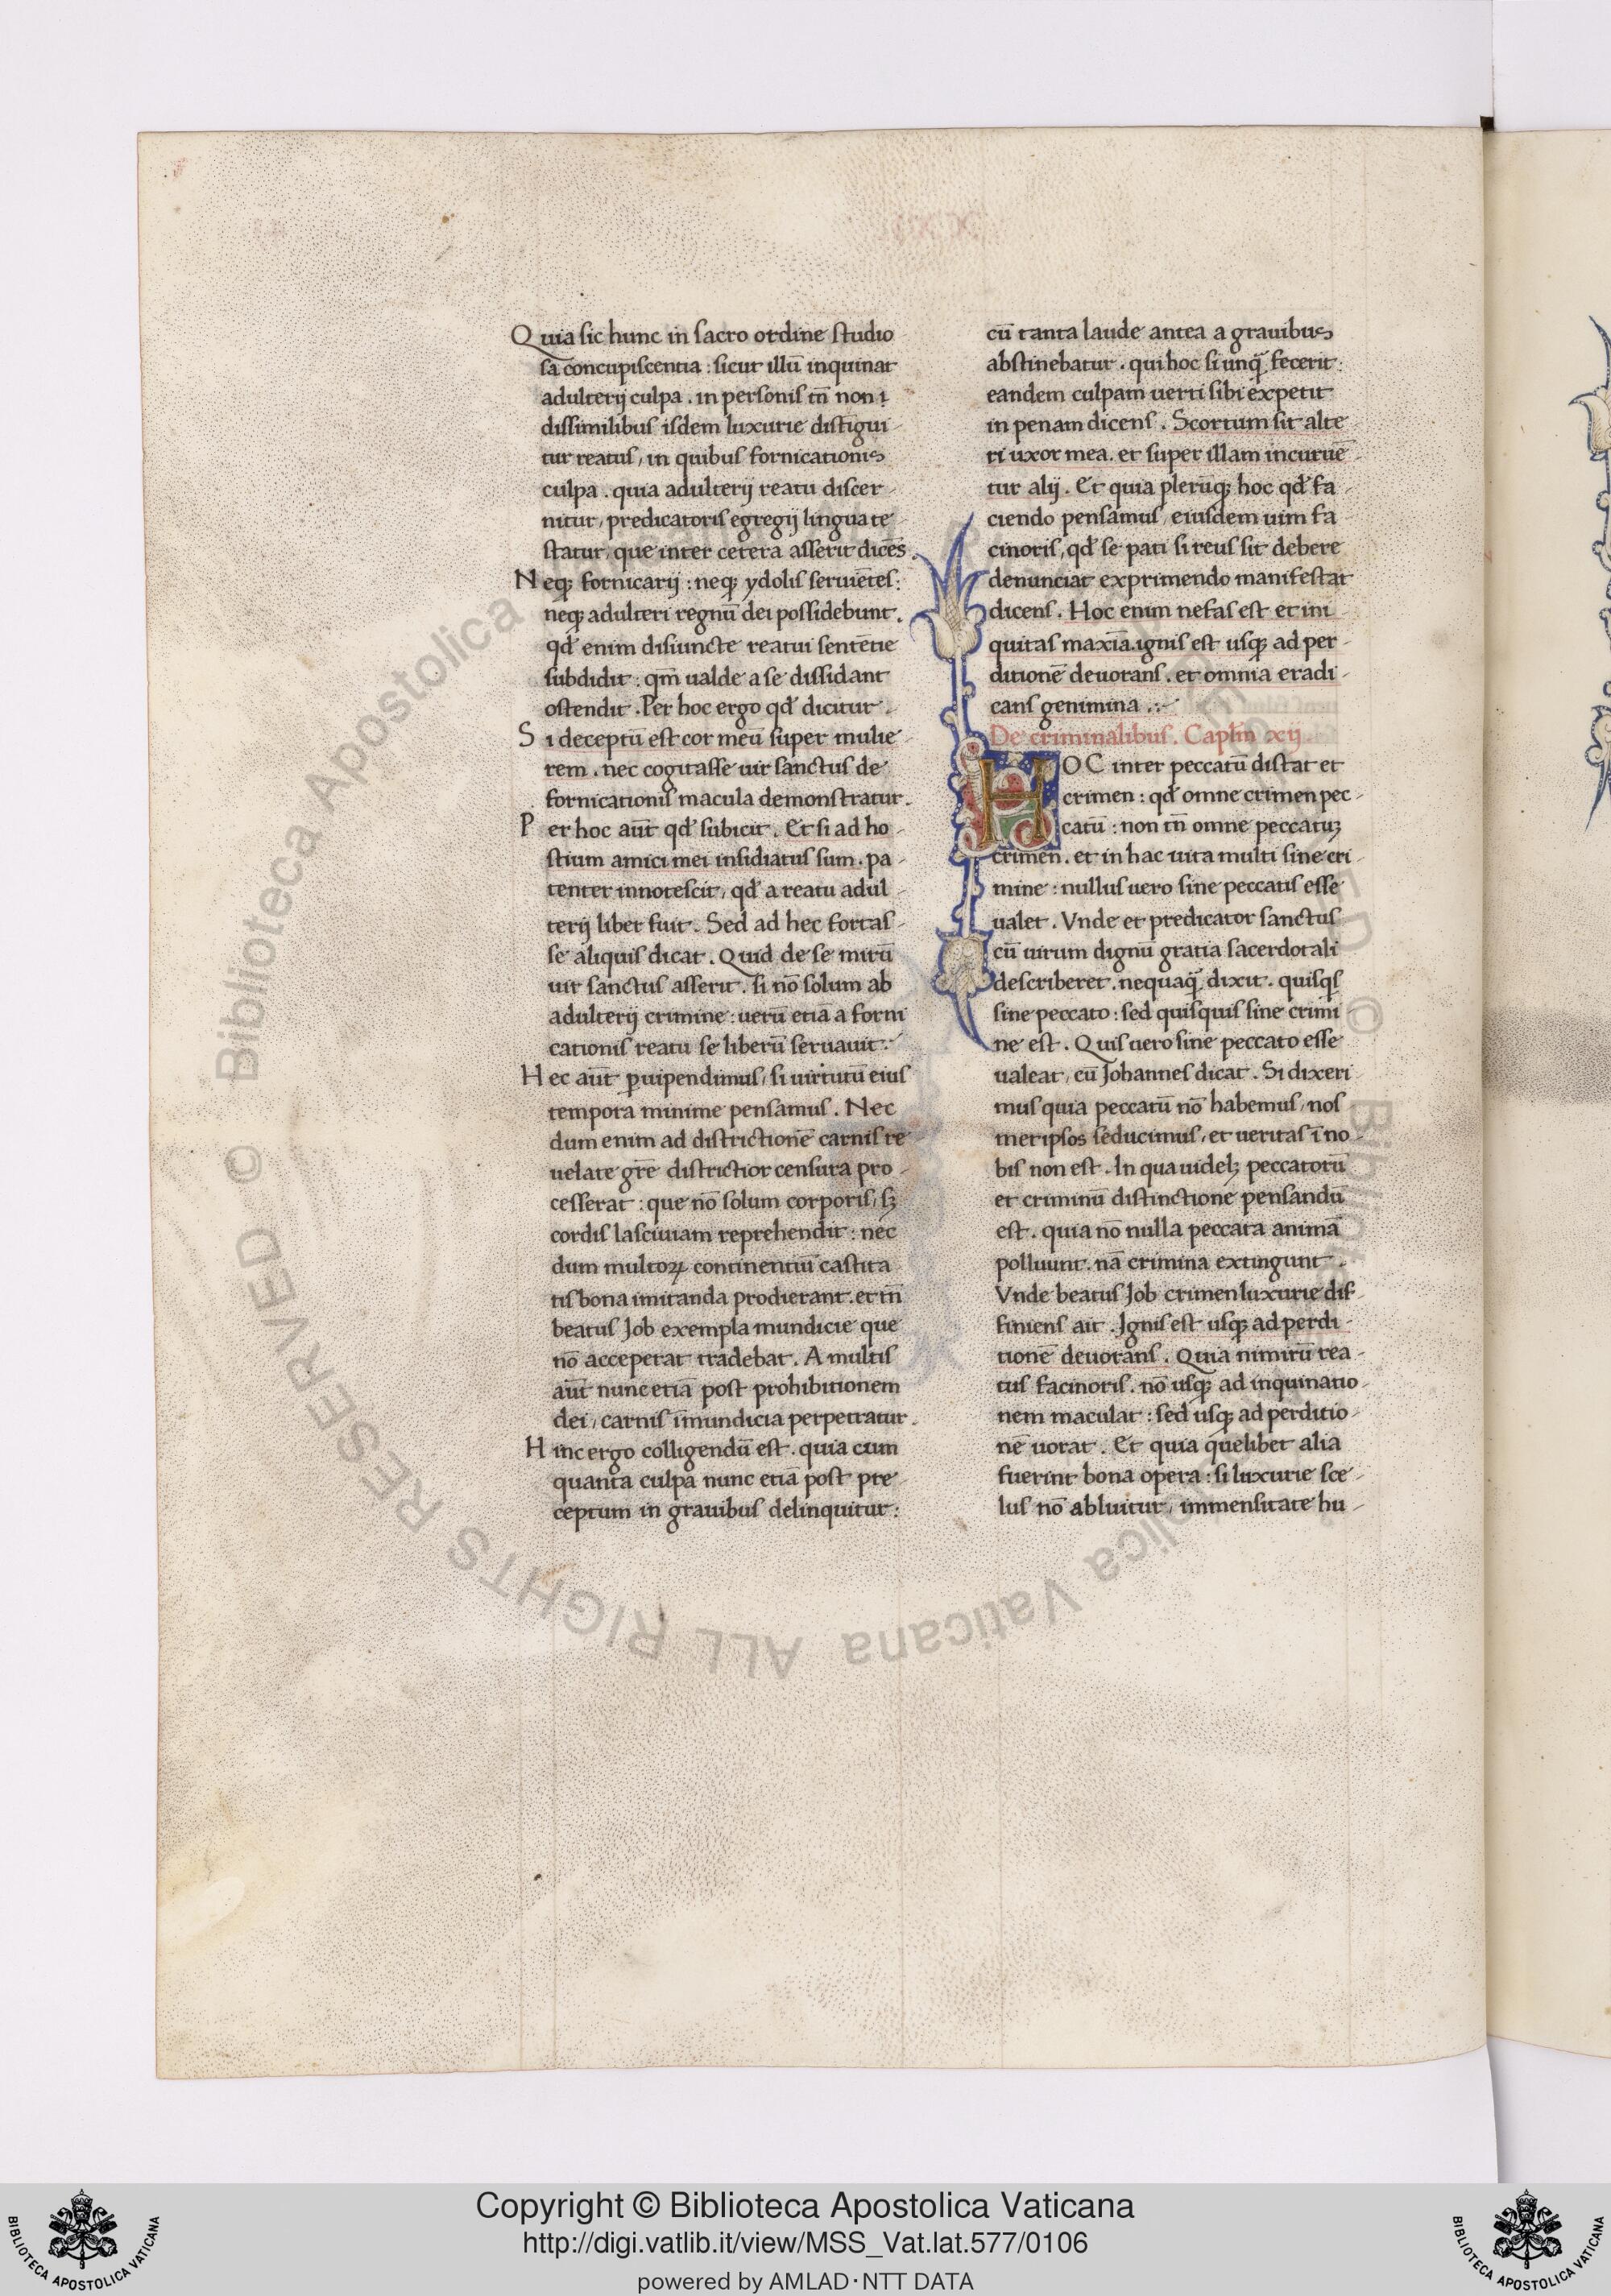 Quia sic hunc in sacro ordine studio
sa concupiscentia : sicut illū inquinat
adulterij culpa . in personis tn̄ non ı
dissimilibus isdem luxurie distīgui-
tur reatus, in quibus fornicationis
culpa . quia adulterij reatu discer-
nitur, predicatoris egregij lingua te-
statur, que inter cetera asserit dicēs.
Neq; fornicarij : neq; ydolis seruiētes:
neq; adulteri regnū dei possidebunt.
qđ enim disiuncte reatui sentētie
subdidit : qm̄ ualde a se dissidant
ostendit . Per hoc ergo qđ dicitur.
Si deceptū est cor meū super mulie-
rem . nec cogitasse uir sanctus de
fornicationis macula demonstratur.
Per hoc aūt qđ subicit . Et si ad ho-
stium amici mei insidiatus sum . pa-
tenter innotescit, qđ a reatu adul-
terij liber fuit . Sed ad hec fortas-
se aliquis dicat . Quid de se mirū
uir sanctus asserit . si nō solum ab
adulterij crimine : uerū etiā a forni
cationis reatu se liberū seruauit.
Hec aūt ꝑuipendimus, si uirtutū eius
tempora minime pensamus . Nec
dum enim ad districtionē carnis re-
uelate gr̄e districtior censura pro-
cesserat : que nō solum corporis, sȝ
cordis lasciuiam reprehendit : nec
dum multoꝝ continentiū castita
tis bona imitanda prodierant . et tn̄
beatus Job exempla mundicie que
nō acceperat tradebat . A multis
aūt nunc etiā post prohibitionem
dei, carnis īmundicia perpetratur.
Hinc ergo colligendū est . quia cum
quanta culpa nunc etiā post pre-
ceptum in grauibus delinquitur:
cū tanta laude antea a grauibus
abstinebatur . qui hoc si unq̄ fecerit:
eandem culpam uerti sibi expetit
in penam dicens . Scortum sit alte
ri uxor mea . et super illam incuruē-
tur alij . Et quia plerūq; hoc qđ fa-
ciendo pensamus, eiusdem uim fa-
cinoris, qđ se pati si reus sit debere
denunciat exprimendo manifestat
dicens . Hoc enim nefas est et ini-
quitas maxīa . ignis est usq; ad per-
ditionē deuorans . et omnia eradi-
cans genimina .:~
De criminalibus . Capl̄m xij.
HOC inter peccatū distat et
crimen : qđ omne crimen pec-
catū : non tn̄ omne peccatuȝ
crimen . et in hac uita multi sine cri-
mine : nullus uero sine peccatis esse
ualet . Vnde et predicator sanctus
cū uirum dignū gratia sacerdotali
describeret . nequaq̄ dixit . quisqs
sine peccato : sed quisquis sine crimi-
ne est . Quis uero sine peccato esse
ualeat, cū Johannes dicat . Si dixeri-
mus quia peccatū nō habemus, nos
metipsos seducimus, et ueritas ī no-
bis non est . In qua uidelȝ peccatorū
et criminū distinctione pensandū
est . quia nō nulla peccata animā
polluunt . nā crimina extingunt.
Vnde beatus Job crimen luxurie dif-
finiens ait . Jgnis est usq; ad perdi-
tionē deuorans . Quia nimirū rea-
tus facinoris . nō usq; ad inquinatio-
nem maculat : sed usq; ad perditio-
nē uorat . Et quia quelibet alia
fuerint bona opera : si luxurie sce-
lus nō abluitur, immensitate hu-
© Biblioteca Apostolica Vaticana ALL RIGHTS RESERVED
Copyright © Biblioteca Apostolica Vaticana
http://digi.vatlib.it/view/MSS_Vat.lat.577/0106
powered by AMLAD·NTT DATA
BIBLIOTECA APOSTOLICA VATICANA
BIBLIOTECA APOSTOLICA VATICANA